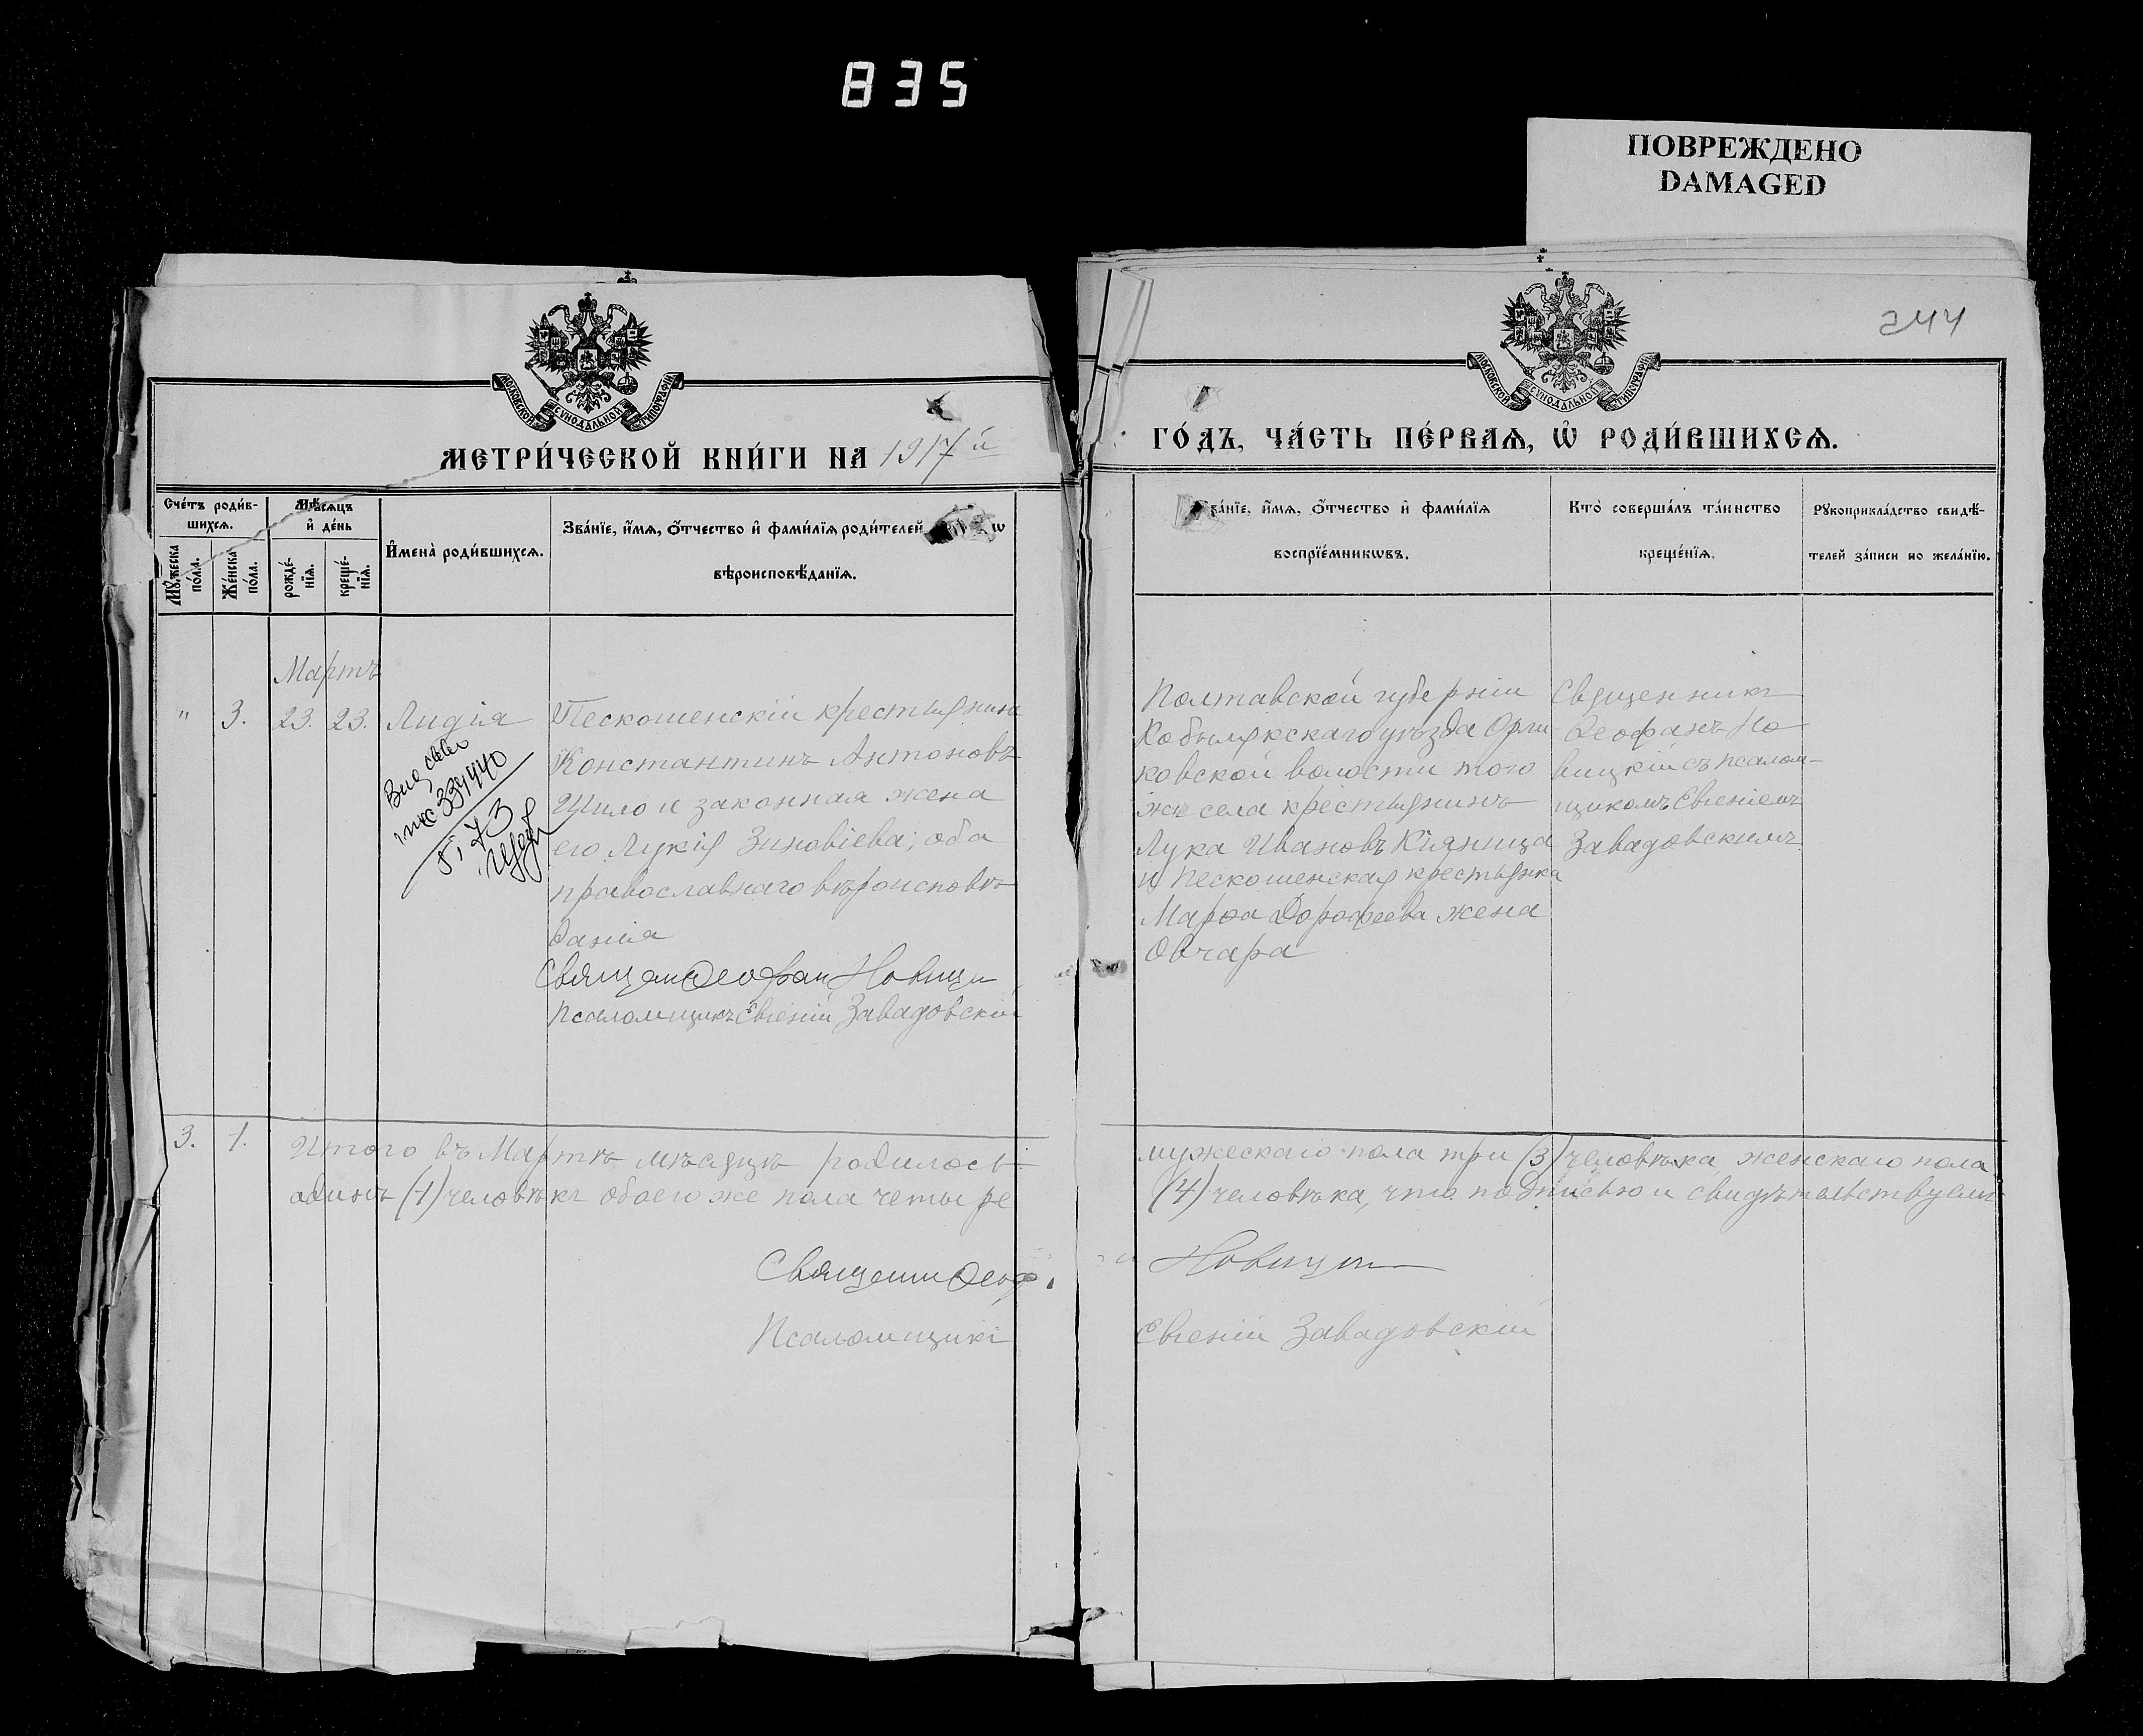 835
ПОВРЕЖДЕНО
DAMAGED
244
МОСКОВСКОЙ СѴНОДАЛЬНОЙ ТИПОГРАФІИ
МОСКОВСКОЙ СѴНОДАЛЬНОЙ ТИПОГРАФІИ
МЕТРИ́ЧЕСКОЙ КНИ́ГИ НА 1917й
ГО́ДЪ, ЧА́СТЬ ПЕ́РВАѦ, Ѡ҆ РОДИ́ВШИХСѦ.
Сче́тъ роди́в-
шихсѧ.
Мꙋ́жеска
по́ла.
Же́нска
по́ла.
Мѣ́сѧцъ
и҆ де́нь
рожде́-
нїѧ.
креще́-
нїѧ.
И҆мена̀ роди́вшихсѧ.
Зва́нїе, и҆́мѧ, ѻ҆́тчество и҆ фами́лїѧ роди́телей
вѣроисповѣ́данїѧ.
ва́нїе, и҆́мѧ, ѻ҆́тчество и҆ фами́лїѧ
воспрїе́мникѡвъ.
Кто̀ соверша́лъ та́инство
креще́нїѧ.
Рꙋкоприкла́дство свидѣ́-
телей за́писи по жела́нїю.
Мартъ
" 3. 23. 23. Лидія
339440
73
Пескошенскій крестьянинъ
Константинъ Антоновъ
Шило и законная жена
его Лукія Зиновіева; оба
православнаго вѣроисповѣ
данія
Священ Ѳеофан Новици
Псаломщикъ Евгеній Завадовскій
Полтавской губерніи
Кобылякскаго уѣзда Орли
ковской волости того
жъ села крестьянинъ
Лука Ивановъ Кіяница
и Пескошенская крестьянка
Марѳа Дорофеева жена
Овчара
Священникъ
Ѳеофанъ Но
вицкій съ псалом-
щикомъ Евгеніемъ
Завадовскимъ
3. 1. Итого въ Мартѣ мѣсяцѣ родилось мужескаго пола три (3) человѣка женскаго пола
одинъ (1) человѣкъ обоего же пола четыре (4) человѣка, что подписью и свидѣтельствуемъ
Священ Ѳеоф. Новици
Псаломщикъ Евгеній Завадовскій